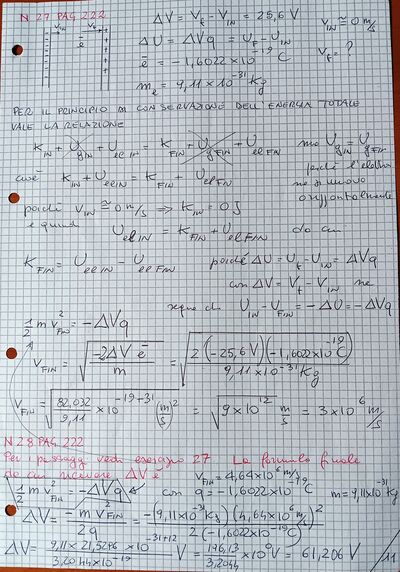 N 27 PAG 222
ΔV = V_f − V_IN = 25,6 V    v_IN ≅ 0 m/s
ΔU = ΔVq = U_f − U_IN
e̅ = −1,6022×10^-19 C    v_f = ?
m_e = 9,11×10^-31 Kg
PER IL PRINCIPIO DI CONSERVAZIONE DELL'ENERGIA TOTALE
VALE LA RELAZIONE
K_IN + U_gIN + U_elIN = K_FIN + U_gFIN + U_elFIN    ma U_gIN = U_gFIN
cioè K_IN + U_elIN = K_FIN + U_elFIN    poiché l'elettro
ne si muove
orizzontalmente
poiché v_IN ≅ 0 m/s ⇒ K_IN = 0 J
e quindi U_elIN = K_FIN + U_elFIN    da cui
K_FIN = U_elIN − U_elFIN    poiché ΔU = U_f − U_IN = ΔVq
con ΔV = V_f − V_IN ne
segue che U_IN − U_FIN = −ΔU = −ΔVq
1/2 m v²_FIN = −ΔVq
v_FIN = √(−2ΔV e̅ / m) = √(2(−25,6 V)(−1,6022×10^-19 C) / 9,11×10^-31 Kg)
v_FIN = √(82,032/9,11 ×10^-19+31 (m/s)²) = √(9×10^12) m/s = 3×10^6 m/s
N 28 PAG 222
Per i passaggi vedi esercizio 27 La formula finale
da cui ricavare ΔV è    v_FIN = 4,64×10^6 m/s
1/2 m v²_FIN = −ΔVq    con q = −1,6022×10^-19 C    m = 9,11×10^-31 Kg
ΔV = −m v²_FIN / 2q = −(9,11×10^-31 Kg)(4,64×10^6 m/s)² / 2(−1,6022×10^-19 C)
ΔV = 9,11×21,5296×10^-31+12 / 3,2044×10^-19 V = 196,13/3,2044 ×10^0 V = 61,206 V
/11